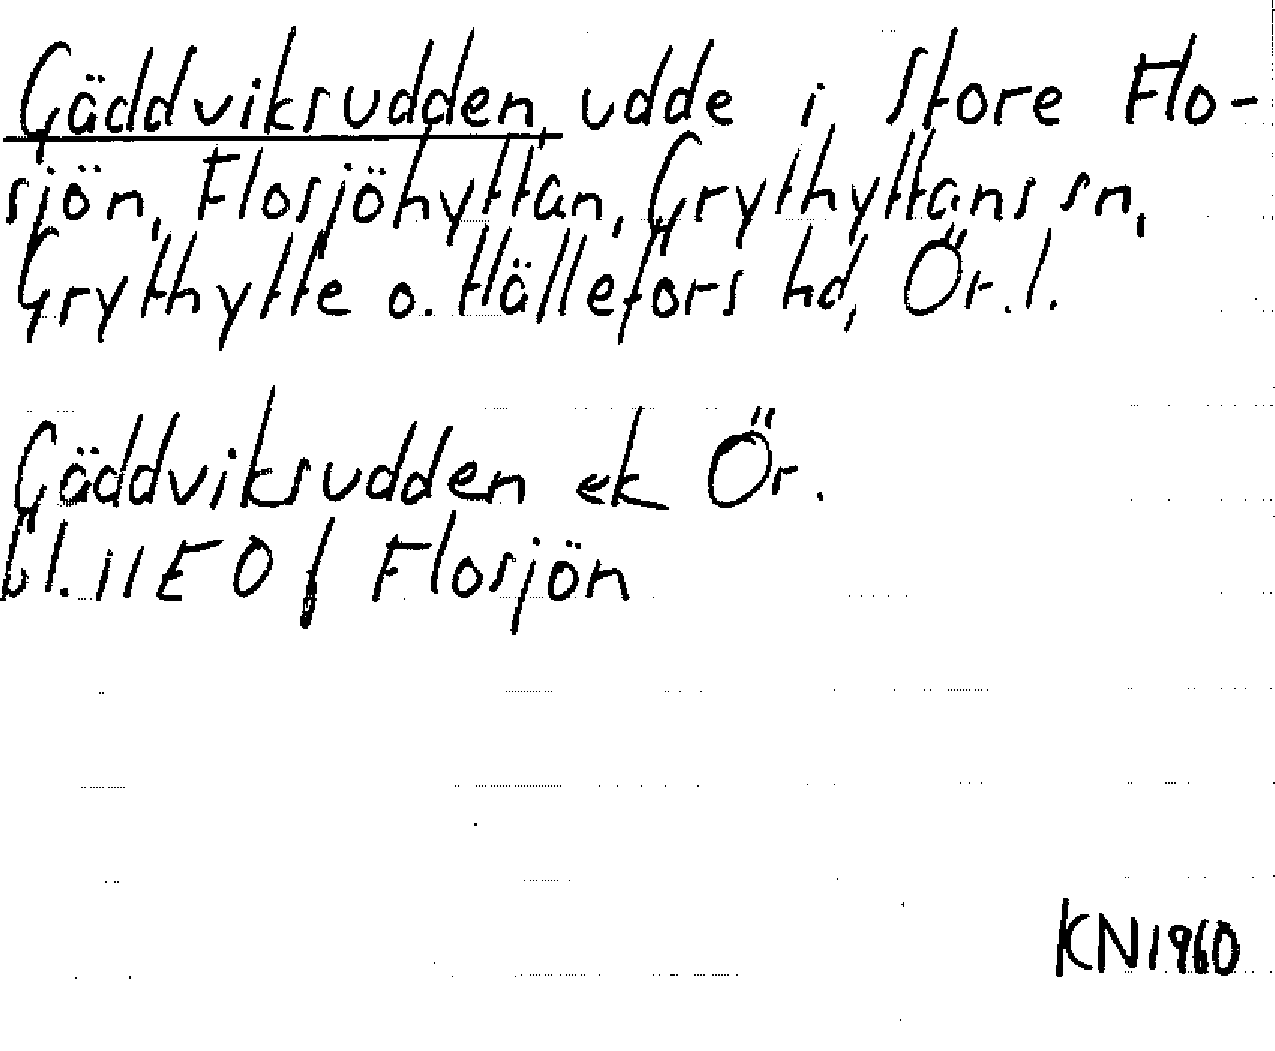 Gäddviksudden, udde i Store Flo-
sjön, Flosjöhyttan, Grythyttans sn,
Grythytte o. Hällefors hd, Ör. l.
Gäddviksudden ek Ör.
bl. 11E 0f Flosjön
KN 1960